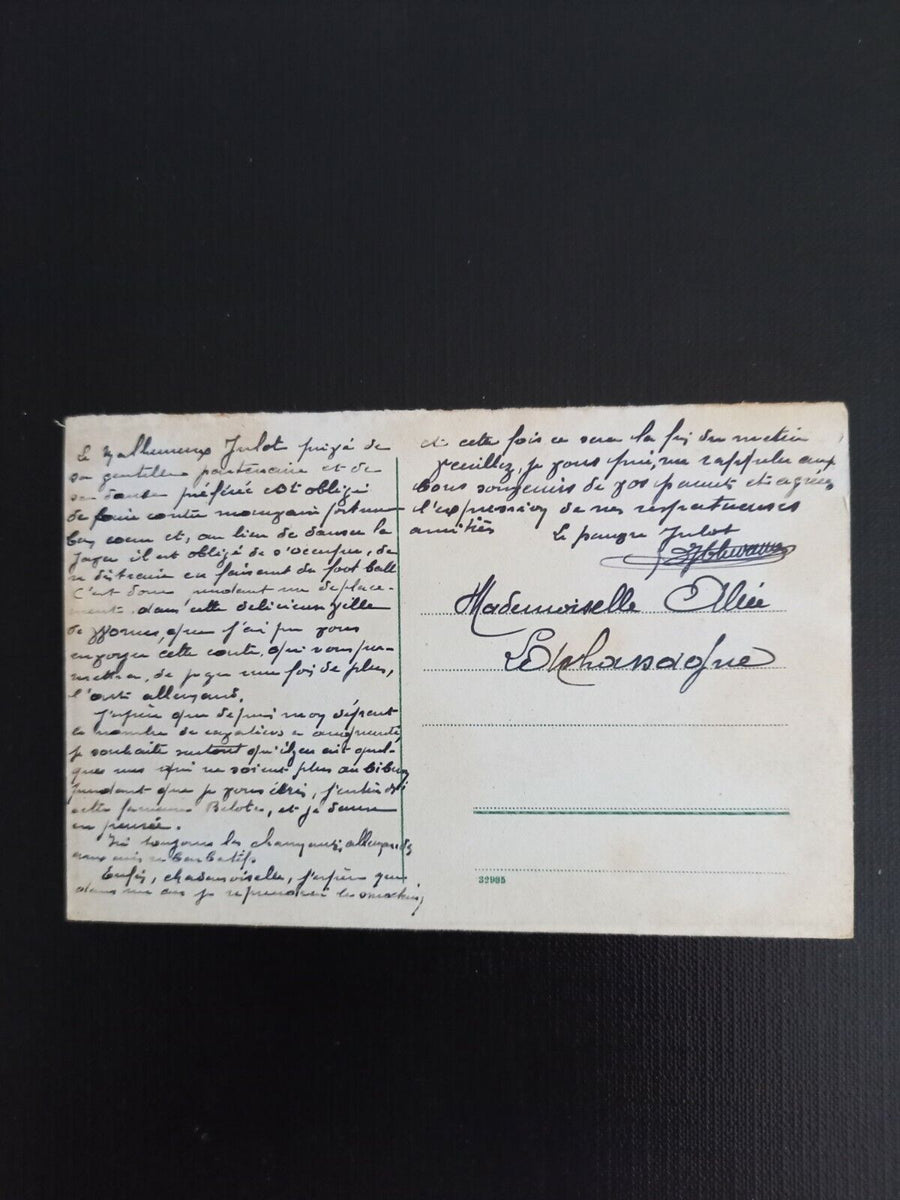 Le malheureux Julot privé de
sa gentille partenaire et de
sa danse préférée est obligé
de faire contre mauvaise fortune
bon coeur et, au lieu de danser la
Java il est obligé de s'occuper, de
se distraire en faisant du foot ball
C'est donc pendant un déplace-
ment dans cette délicieuse ville
de Worms, que j'ai pu vous
envoyer cette carte qui vous per-
mettra, de juger une fois de plus,
l'art allemand.
J'espère que depuis mon départ
le nombre de cavaliers a augmenté
je souhaite surtout qu'il y en ait quel-
ques uns qui ne soient plus au biberon
pendant que je vous écris, j'entends
cette fameuse Belote, et je danse
en pensée.
Ici toujours les charmants allemands
aux airs
Enfin, Mademoiselle, j'espère que
dans un an je reprendrai le smoking
et cette fois ce sera la fin du métier
Veuillez, je vous prie, me rappeler aux
bons souvenirs de vos parents et agréer
l'expression de mes respectueuses
amitiés
Le pauvre Julot
Mademoiselle Alice
Lachassagne
32905